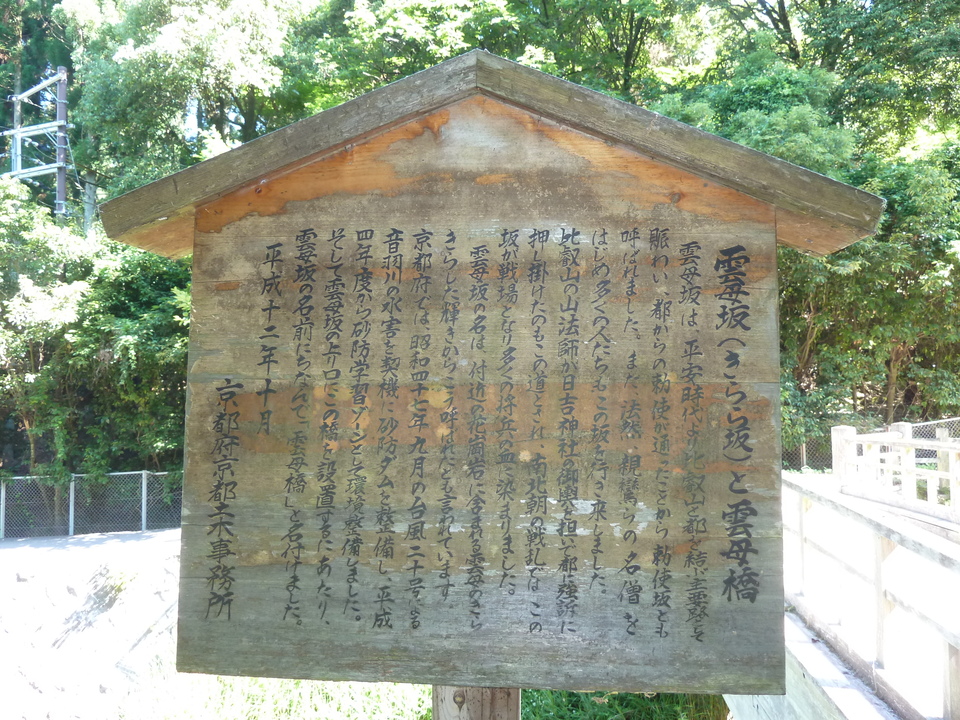 雲母坂（きらら坂）と雲母橋
雲母坂は、平安時代より比叡山と都を結ぶ主要路を
賑わい、都からの勅使が通ったことから勅使坂とも
呼ばれました。また、法然、親鸞らの名僧を
はじめ多くの人たちもこの坂を行き来しました。
比叡山の山法師が日吉神社の御輿を担いで都に強訴に
押し掛けたのもこの道とされ、南北朝の戦乱では、この
坂が戦場となり多くの将兵の血に染まりました。
雲母坂の名は、付近の花崗岩に含まれる雲母のきら
きらした輝きからこう呼ばれたと言われています。
京都府では、昭和四十七年九月の台風二十号による
音羽川の水害を契機に砂防ダムを整備し、平成
四年度から砂防学習ゾーンとして環境整備しました。
そして雲母坂の上り口にこの橋を設置するにあたり、
雲母坂の名前にちなんで「雲母橋」と名付けました。
平成十二年十月
京都府京都土木事務所